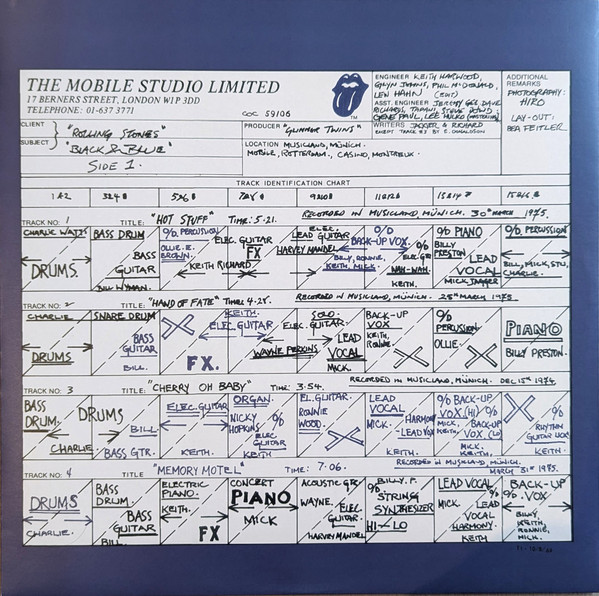 THE MOBILE STUDIO LIMITED
17 BERNERS STREET, LONDON W1P 3DD
TELEPHONE: 01-637 3771
COC 59106
TM
ENGINEER KEITH HARWOOD,
GLYN JOHNS, PHIL McDONALD,
LEW HAHN (EDIT)
ASST. ENGINEER JEREMY GEE DAVE
RICHARDS, TAPANI, STEVE DOWD
GENE PAUL, LEE HULKO (MASTERING)
WRITERS JAGGER & RICHARD
EXCEPT TRACK #3 BY E. DONALDSON
ADDITIONAL
REMARKS
PHOTOGRAPHY:
HIRO
LAY-OUT:
BEA FEITLER
CLIENT "ROLLING STONES"
SUBJECT "BLACK & BLUE"
SIDE 1.
PRODUCER "GLIMMER TWINS"
LOCATION MUSICLAND, MÜNICH.
MOBILE, ROTTERDAM, CASINO, MONTREUX.
TRACK IDENTIFICATION CHART
1 & 2 3 & 4 5 & 6 7 & 8 9 & 10 11 & 12 13 & 14 15 & 16
TRACK NO: 1 TITLE: "HOT STUFF" TIME: 5·21. RECORDED IN MUSICLAND, MÜNICH. 30th MARCH 1975.
CHARLIE WATTS
DRUMS.
BASS DRUM
BASS
GUITAR
BILL WYMAN.
% PERCUSSION
OLLIE E.
BROWN.
ELEC. GUITAR
FX
KEITH RICHARD
ELEC.
LEAD GUITAR
HARVEY MANDEL
%
BACK-UP VOX.
BILLY, RONNIE,
KEITH, MICK.
%
ELEC. GTR
WAH-WAH.
KEITH.
% PIANO
BILLY
PRESTON
LEAD
VOCAL
MICK JAGGER
% PERCUSSION
BILL, MICK, STU,
CHARLIE.
TRACK NO: 2 TITLE: "HAND OF FATE" TIME: 4·28. RECORDED IN MUSICLAND, MÜNICH. 25th MARCH 1975.
CHARLIE
DRUMS
SNARE DRUM
BASS
GUITAR
BILL.
FX.
KEITH.
ELEC. GUITAR
SOLO.
ELEC. GUITAR.
WAYNE PERKINS
LEAD
VOCAL
MICK
BACK-UP
VOX
KEITH,
RONNIE.
%
PERCUSSION
OLLIE
PIANO
BILLY PRESTON.
TRACK NO: 3 TITLE: "CHERRY OH BABY" TIME: 3·54. RECORDED IN MUSICLAND, MÜNICH. DEC 15th 1974.
BASS
DRUM.
DRUMS
CHARLIE
BILL
BASS GTR.
ELEC. GUITAR
KEITH.
ORGAN.
NICKY
HOPKINS
%
ELEC
GUITAR
KEITH
EL. GUITAR.
RONNIE
WOOD.
LEAD
VOCAL
MICK
HARMONY
-LEAD VOX
KEITH.
% BACK-UP
VOX. (HI)
MICK,
KEITH.
%
BACK-UP
VOX (LO)
MICK.
KEITH.
%
RHYTHM
GUITAR VOX
KEITH.
TRACK NO: 4 TITLE "MEMORY MOTEL" TIME: 7·06. RECORDED IN MUSICLAND, MÜNICH.
MARCH 31st 1975.
DRUMS
CHARLIE.
BASS
DRUM.
BASS
GUITAR
BILL
ELECTRIC
PIANO.
KEITH.
FX
CONCERT
PIANO
MICK
ACOUSTIC GTR
WAYNE.
ELEC.
GUITAR.
HARVEY MANDEL
BILLY. P.
%
STRING
SYNTHESIZER
HI-LO
LEAD VOCAL
MICK
%
LEAD
VOCAL
HARMONY.
KEITH
BACK-UP
% VOX.
BILLY,
KEITH,
RONNIE,
MICK.